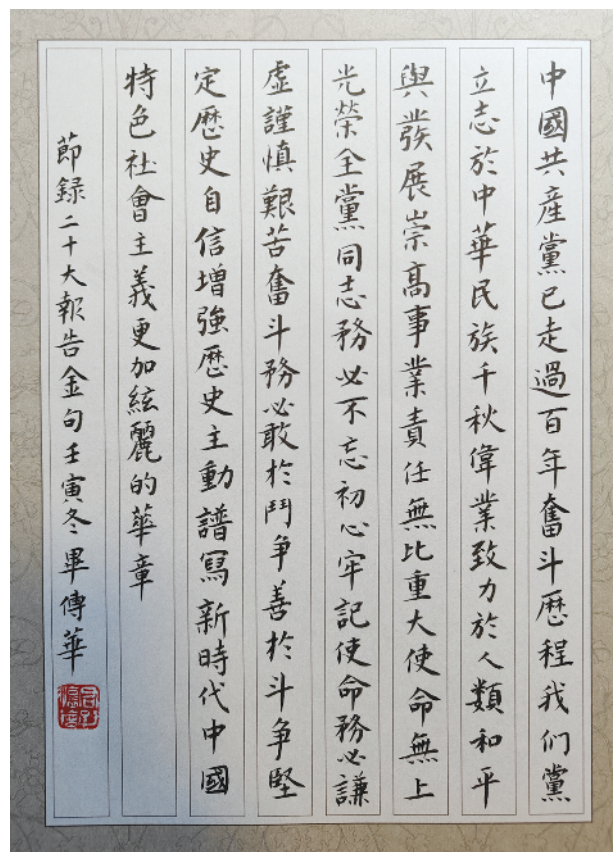 中國共産黨已走過百年奮斗歷程我们黨
立志於中華民族千秋偉業致力於人類和平
與發展崇高事業責任無比重大使命無上
光榮全黨同志務必不忘初心牢記使命務必謙
虛謹慎艱苦奮斗務必敢於鬥爭善於斗爭堅
定歷史自信增強歷史主動譜寫新時代中國
特色社會主義更加絃麗的華章
節録二十大報告金句壬寅冬畢傳華